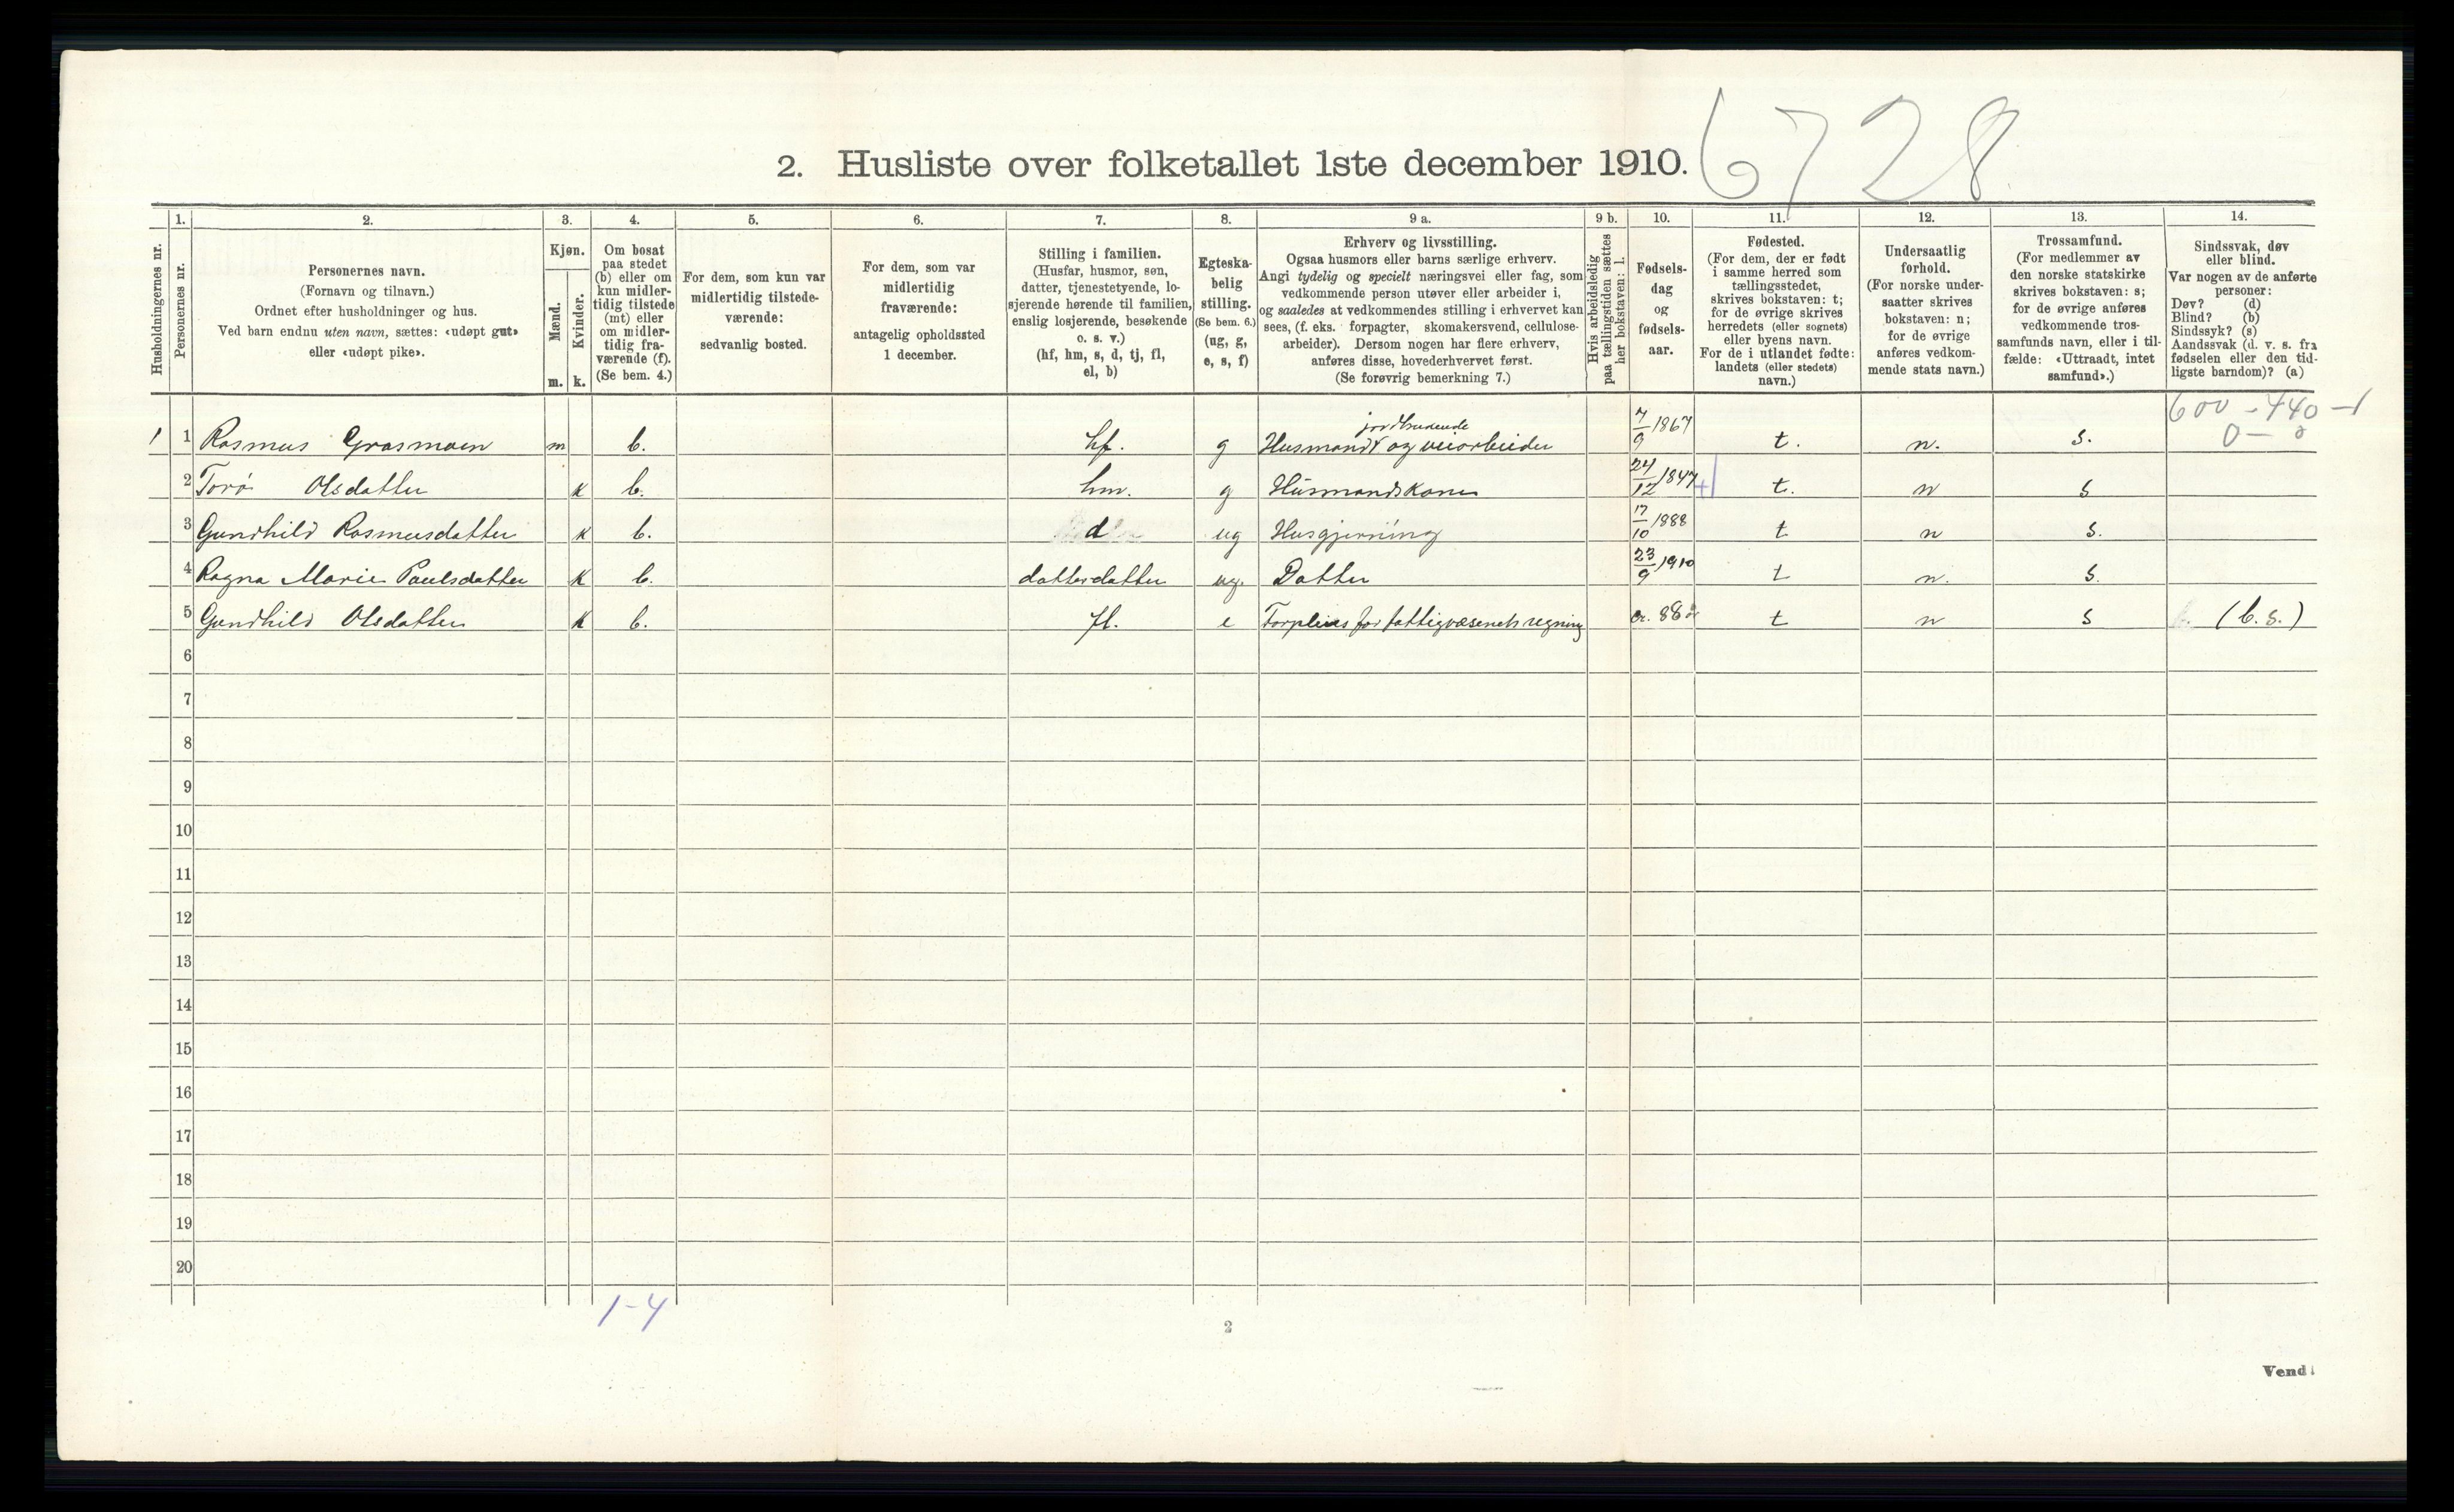 6728
2. Husliste over folketallet 1ste december 1910.
Husholdningernes nr.
1.
Personernes nr.
2.
Personernes navn.
(Fornavn og tilnavn.)
Ordnet efter husholdninger og hus.
Ved barn endnu uten navn, sættes: «udøpt gut»
eller «udøpt pike».
3.
Kjøn.
Mænd.
Kvinder.
m. k.
4.
Om bosat
paa stedet
(b) eller om
kun midler-
tidig tilstede
(mt) eller
om midler-
tidig fra-
værende (f).
(Se bem. 4.)
5.
For dem, som kun var
midlertidig tilstede-
værende:
sedvanlig bosted.
6.
For dem, som var
midlertidig
fraværende:
antagelig opholdssted
1 december.
7.
Stilling i familien.
(Husfar, husmor, søn,
datter, tjenestetyende, lo-
sjerende hørende til familien,
enslig losjerende, besøkende
o. s. v.)
(hf, hm, s, d, tj, fl,
el, b)
8.
Egteska-
belig
stilling.
(Se bem. 6.)
(ug, g,
e, s, f)
9 a.
Erhverv og livsstilling.
Ogsaa husmors eller barns særlige erhverv.
Angi tydelig og specielt næringsvei eller fag, som
vedkommende person utøver eller arbeider i,
og saaledes at vedkommendes stilling i erhvervet kan
sees, (f. eks. forpagter, skomakersvend, cellulose-
arbeider). Dersom nogen har flere erhverv,
anføres disse, hovederhvervet først.
(Se forøvrig bemerkning 7.)
9 b.
Hvis arbeidsledig
paa tællingstiden sættes
her bokstaven: l.
10.
Fødsels-
dag
og
fødsels-
aar.
11.
Fødested.
(For dem, der er født
i samme herred som
tællingsstedet,
skrives bokstaven: t;
for de øvrige skrives
herredets (eller sognets)
eller byens navn.
For de i utlandet fødte:
landets (eller stedets)
navn.)
12.
Undersaatlig
forhold.
(For norske under-
saatter skrives
bokstaven: n;
for de øvrige
anføres vedkom-
mende stats navn.)
13.
Trossamfund.
(For medlemmer av
den norske statskirke
skrives bokstaven: s;
for de øvrige anføres
vedkommende tros-
samfunds navn, eller i til-
fælde: «Uttraadt, intet
samfund».)
14.
Sindssvak, døv
eller blind.
Var nogen av de anførte
personer:
Døv? (d)
Blind? (b)
Sindssyk? (s)
Aandssvak (d. v. s. fra
fødselen eller den tid-
ligste barndom)? (a)
600 - 440 - 1
0 - 0
jordbrukende
1 1 Rasmus Grasmoen m b. hf. g Husmand og veiarbeider 7/9 1867 t. n. s.
2 Torø Olsdatter k b. hm. g Husmandskone 24/12 1847 t. n s
3 Gundhild Rasmusdatter k b. d ug Husgjerning 17/10 1888 t n s.
4 Ragna Marie Paulsdatter k b. datterdatter ug. Datter 23/9 1910 t n. s.
5 Gundhild Olsdatter k b. fl. e Forpleies for fattigvæsenets regning ca. 88 år t n s (b. s.)
6
7
8
9
10
11
12
13
14
15
16
17
18
19
20
1-4
2
Vend!